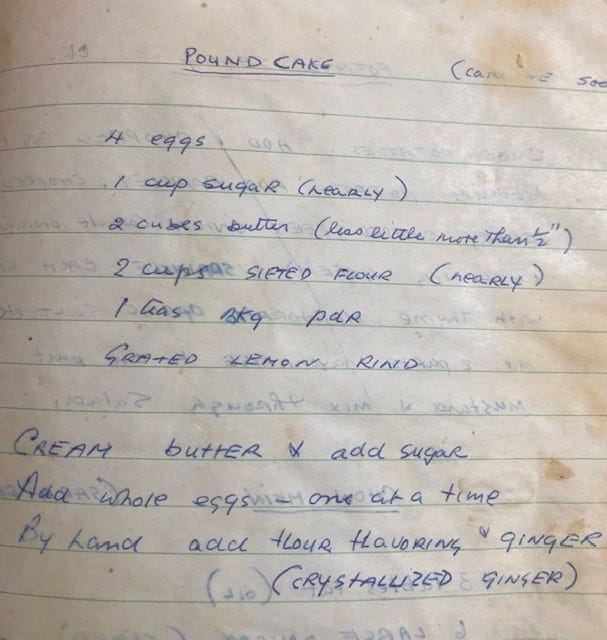 POUND CAKE
4 eggs
1 cup sugar (nearly)
2 cubes butter (less little more than ½")
2 cups SIFTED FLOUR (nearly)
1 teas bkg pdr
GRATED LEMON RIND
CREAM butter & add sugar
Add whole eggs – one at a time
By hand add flour flavoring & GINGER
(CRYSTALLIZED GINGER)